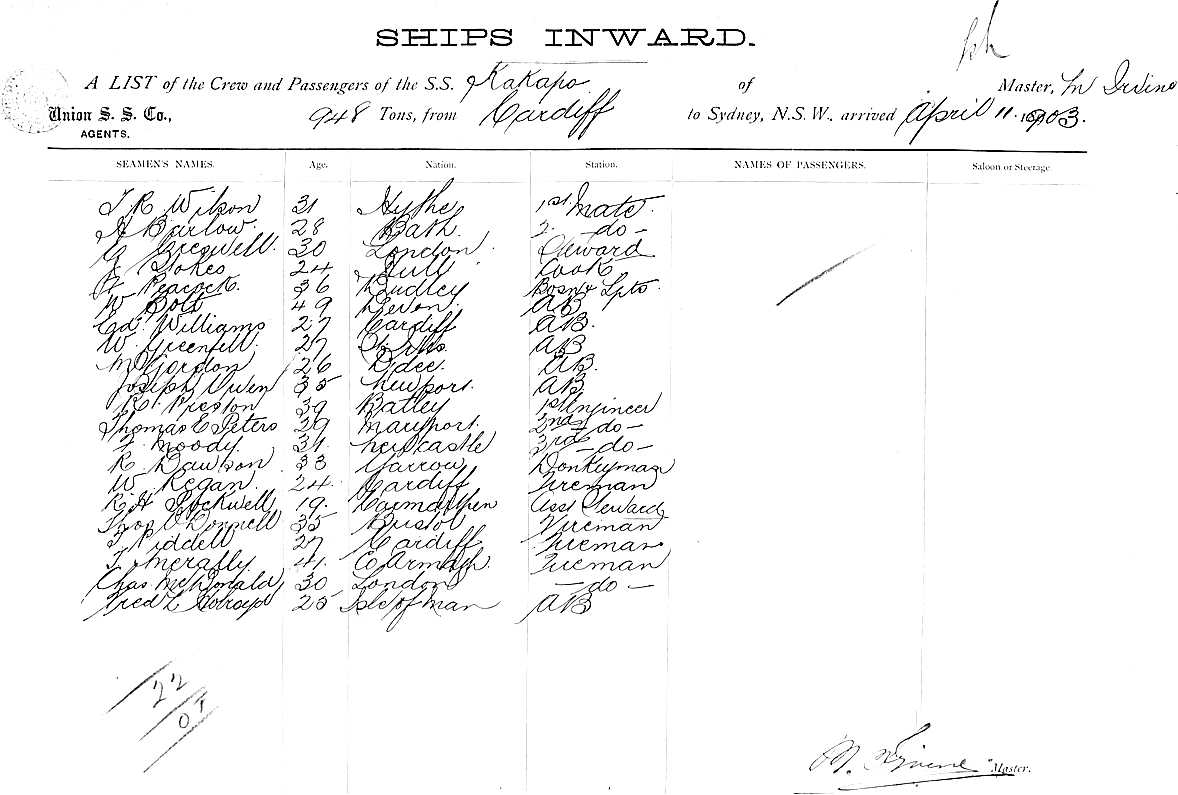 SHIPS INWARD.
A LIST of the Crew and Passengers of the S.S. Kakapo of Master, M Irvine
Union S. S. Co., 948 Tons, from Cardiff to Sydney, N.S.W., arrived April 11. 1903.
AGENTS.
SEAMEN'S NAMES. Age. Nation. Station. NAMES OF PASSENGERS. Saloon or Steerage.
T R Wilson 31 Hythe 1st Mate.
A Barlow. 28 Bath. 2. - do -
G Greswell. 30 London. Steward
Stokes 24 Hull Cook
F Peacock. 36 Dudley Bosn & Lpts.
W Bolt 49 Devon. AB
Ed. Williams 27 Cardiff AB.
W. Greenfell. 27 AB
M Gordon 26 Ddee. AB.
Joseph Owen 35 Newport. AB
R Preston 39 Batley 1st Engineer
Thomas E Peters 39 Maryport. 2nd - do -
F. Moody. 31 Newcastle 3rd - do -
R. Dawson 33 Yarrow Donkeyman
W Regan. 24. Cardiff Fireman
R. H Stockwell 19. Carmarthen Asst Steward
Thos O'Donnell 35 Bristol Fireman
T Riddell 27 Cardiff Fireman
T 41. Co Armagh. Fireman
Chas McDonald 30 London - do -
Fred L 25 Isle of Man AB
22
M. Irvine Master.